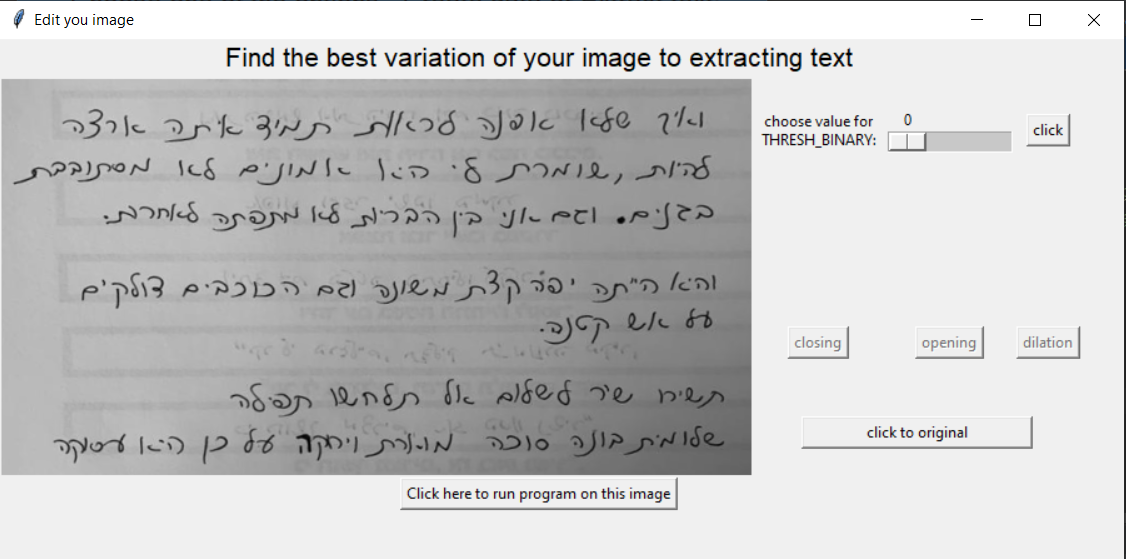 Edit you image
Find the best variation of your image to extracting text
ואיך שלא אפנה לראות תמיד איתה ארצה
להיות, שומרת לי היא אמונים לא מסתובבת
בגנים. וגם אני בין הבריות לא מתפתה לאחרות.
והיא הייתה יפה קצת משונה וגם הכוכבים דולקים
על אש קטנה.
תשירו שיר לשלום אל תלחשו תפילה
שלומית בונה סוכה מוארת וירוקה על כן היא עסוקה
choose value for
THRESH_BINARY:
0
click
closing
opening
dilation
click to original
Click here to run program on this image